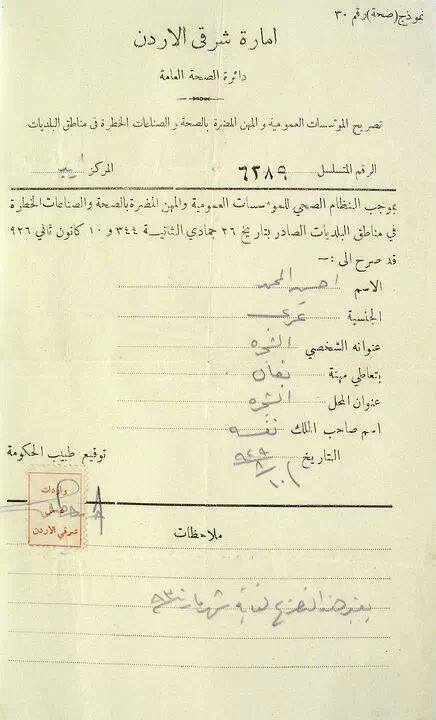 نموذج (صحة) رقم ٣٠
امارة شرقي الاردن
دائرة الصحة العامة
تصريح المؤسسات العمومية والمهن المضرة بالصحة والصناعات الخطرة في مناطق البلديات
الرقم المتسلسل ٦٢٨٩ المركز اربد
بموجب النظام الصحي للمؤسسات العمومية والمهن المضرة بالصحة والصناعات الخطرة
في مناطق البلديات الصادر بتاريخ ٢٦ جمادي الثانية ٣٤٤ و ١٠ كانون ثاني ٩٢٦
قد صرح الى :—
الاسم احمد المحمد
الجنسية عربي
عنوانه الشخصي الشجره
بتعاطي مهنة بقال
عنوان المحل الشجره
اسم صاحب الملك نفسه
التاريخ ٩٢٩/٨/١٠
توقيع طبيب الحكومة
واردات
شرقي الاردن
ملاحظات
يعتبر هذا التصريح لغاية شهر مارت ٩٣٠